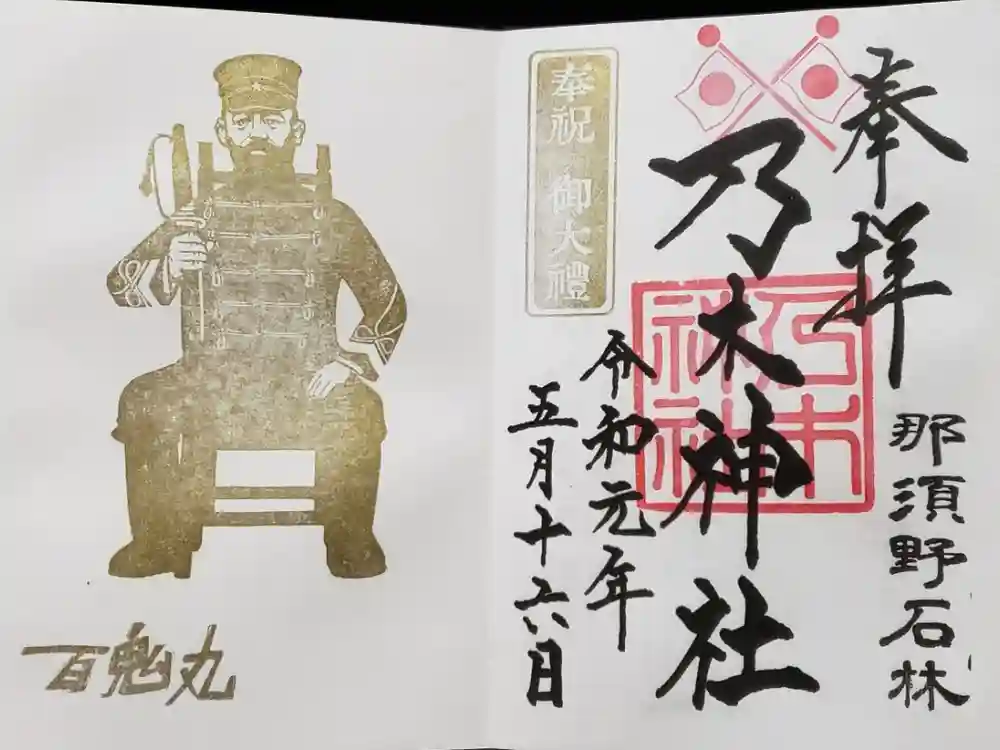 奉拝
那須野石林
乃木神社
乃木神社
奉祝 御大禮
令和元年
五月十六日
百鬼丸